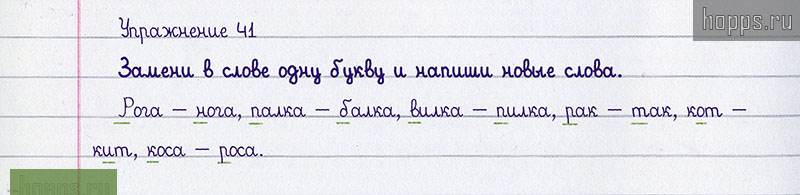 hopps.ru
Упражнение 41
Замени в слове одну букву и напиши новые слова.
Рога – нога, палка – балка, вилка – пилка, рак – так, кот –
кит, коса – роса.
hopps.ru